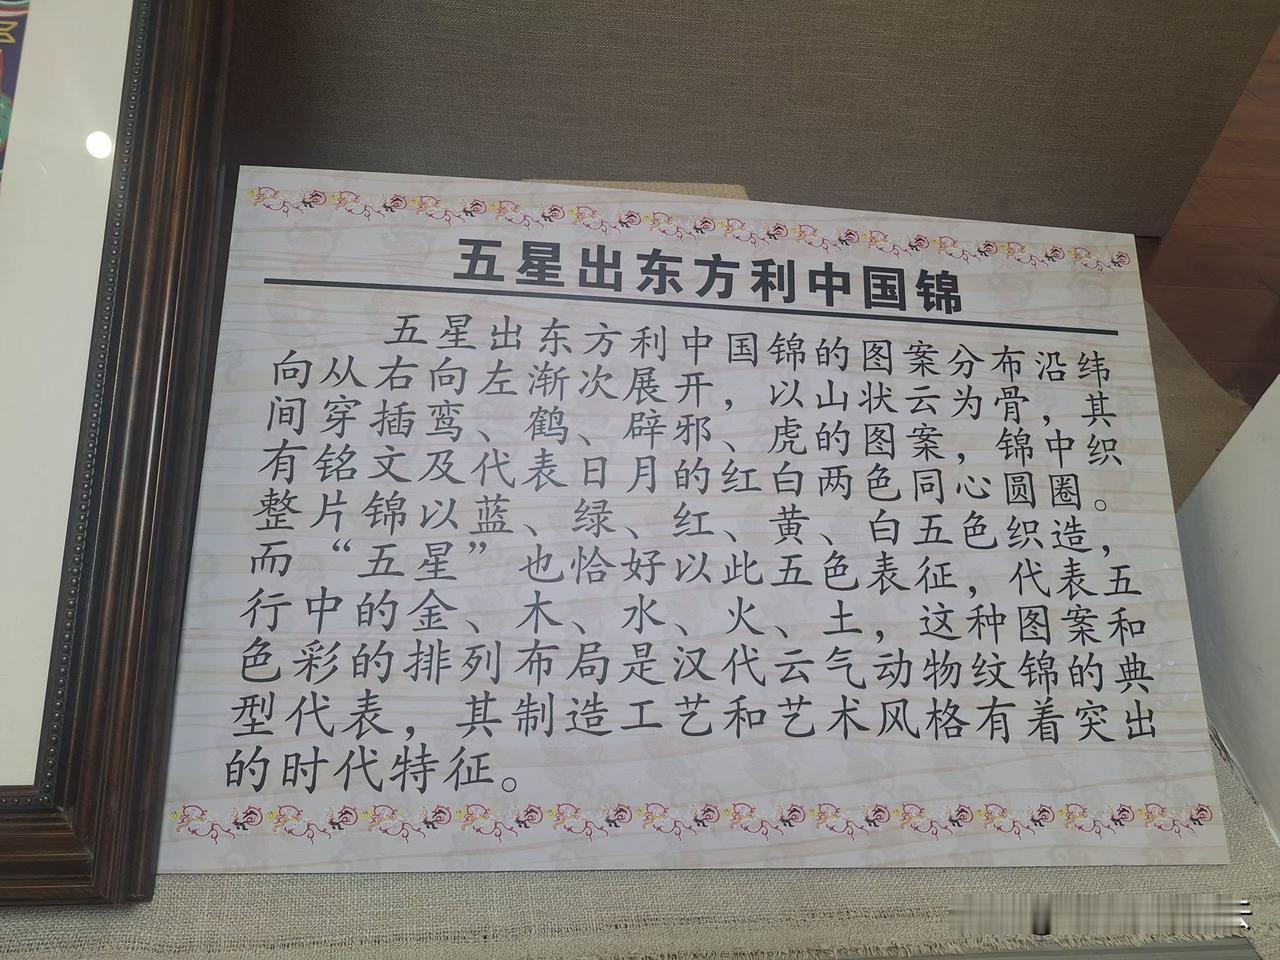 五星出东方利中国锦
五星出东方利中国锦的图案分布沿纬
向从右向左渐次展开，以山状云为骨，其
间穿插鸾、鹤、辟邪、虎的图案，锦中织
有铭文及代表日月的红白两色同心圆圈。
整片锦以蓝、绿、红、黄、白五色织造，
而“五星”也恰好以此五色表征，代表五
行中的金、木、水、火、土，这种图案和
色彩的排列布局是汉代云气动物纹锦的典
型代表，其制造工艺和艺术风格有着突出
的时代特征。